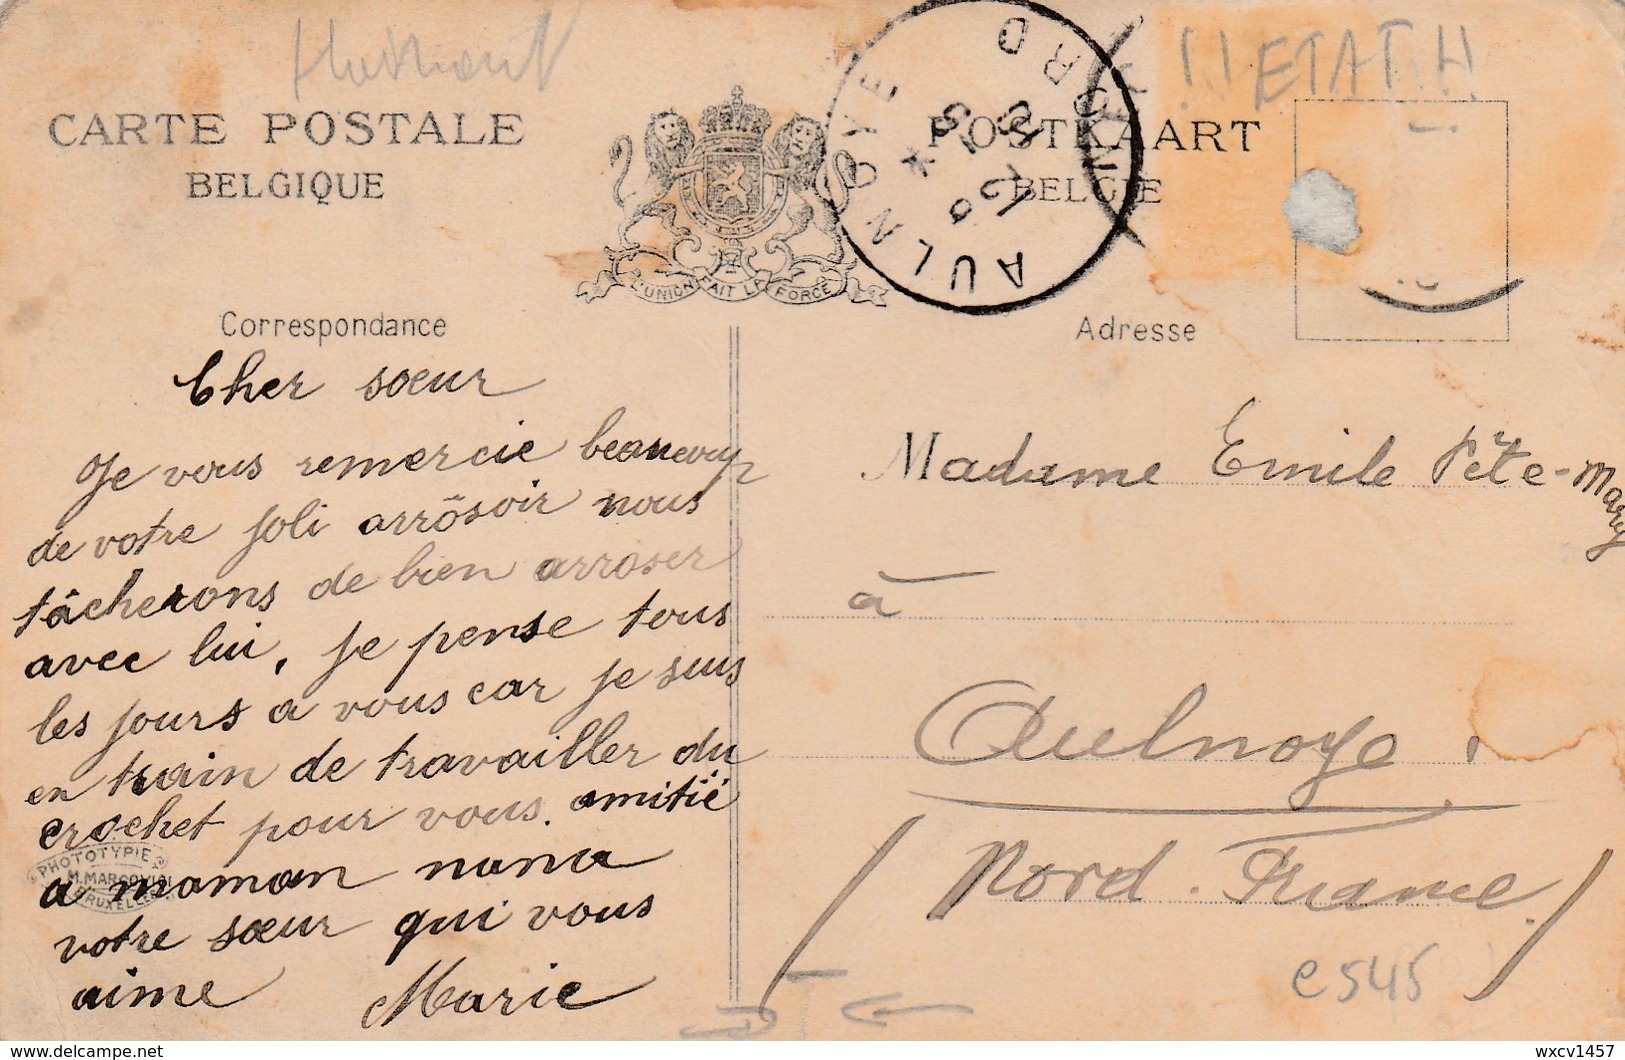 !! ETAT !!
CARTE POSTALE
BELGIQUE
POSTKAART
BELGIE
L'UNION FAIT LA FORCE
AULNOYE
NORD
Correspondance
Adresse
Cher sœur
Je vous remercie beaucoup
de votre joli arrôsoir nous
tâcherons de bien arroser
avec lui, je pense tous
les jours a vous car je suis
en train de travailler du
crochet pour vous. amitïé
a maman nana
votre sœur qui vous
aime Marie
PHOTOTYPIE
M. MARCOVICI
BRUXELLES
Madame Emile Pète-Mary
à
Aulnoye.
(Nord. France.)
c545
wxcv1457